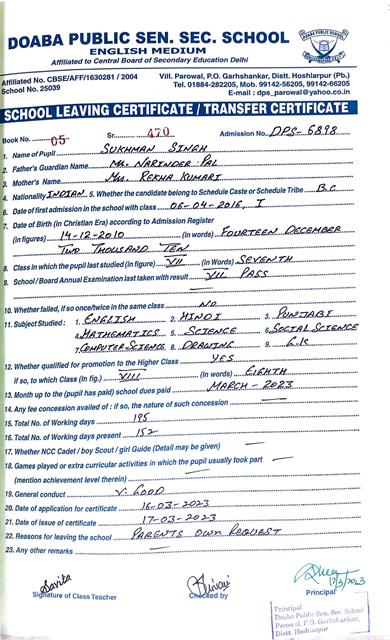 DOABA PUBLIC SEN. SEC. SCHOOL
ENGLISH MEDIUM
Affiliated to Central Board of Secondary Education Delhi
Affiliated No. CBSE/AFF/1630281 / 2004
School No. 25039
Vill. Parowal, P.O. Garhshankar, Distt. Hoshiarpur (Pb.)
Tel. 01884-282205, Mob. 99142-56205, 99142-66205
E-mail : dps_parowal@yahoo.co.in
SCHOOL LEAVING CERTIFICATE / TRANSFER CERTIFICATE
Book No. 05 Sr. 470 Admission No. DPS-6898
1. Name of Pupil SUKHMAN SINGH
2. Father's Guardian Name MR. NARINDER PAL
3. Mother's Name MRS. REKHA KUMARI
4. Nationality INDIAN 5. Whether the candidate belong to Schedule Caste or Schedule Tribe B.C
6. Date of first admission in the school with class 06-04-2016, I
7. Date of Birth (in Christian Era) according to Admission Register
(in figures) 14-12-2010 (in words) FOURTEEN DECEMBER
TWO THOUSAND TEN
8. Class in which the pupil last studied (in figure) VII (in Words) SEVENTH
9. School / Board Annual Examination last taken with result VII PASS
10. Whether failed, if so once/twice in the same class NO
11. Subject Studied : 1. ENGLISH 2. HINDI 3. PUNJABI
4. MATHEMATICS 5. SCIENCE 6. SOCIAL SCIENCE
7. COMPUTER SCIENCE 8. DRAWING 9. G.K
12. Whether qualified for promotion to the Higher Class YES
if so, to which Class (In fig.) VIII (In words) EIGHTH
13. Month up to the (pupil has paid) school dues paid MARCH-2023
14. Any fee concession availed of : if so, the nature of such concession —
15. Total No. of Working days 195
16. Total No. of Working days present 152
17. Whether NCC Cadet / boy Scout / girl Guide (Detail may be given) —
18. Games played or extra curricular activities in which the pupil usually took part
(mention achievement level therein) —
19. General conduct V. GOOD
20. Date of application for certificate 16-03-2023
21. Date of issue of certificate 17-03-2023
22. Reasons for leaving the school PARENTS OWN REQUEST
23. Any other remarks —
Savita
Signature of Class Teacher
Checked by
17/3/2023
Principal
Principal
Doaba Public Sen. Sec. School
Parowal, P.O. Garhshankar,
Distt. Hoshiarpur